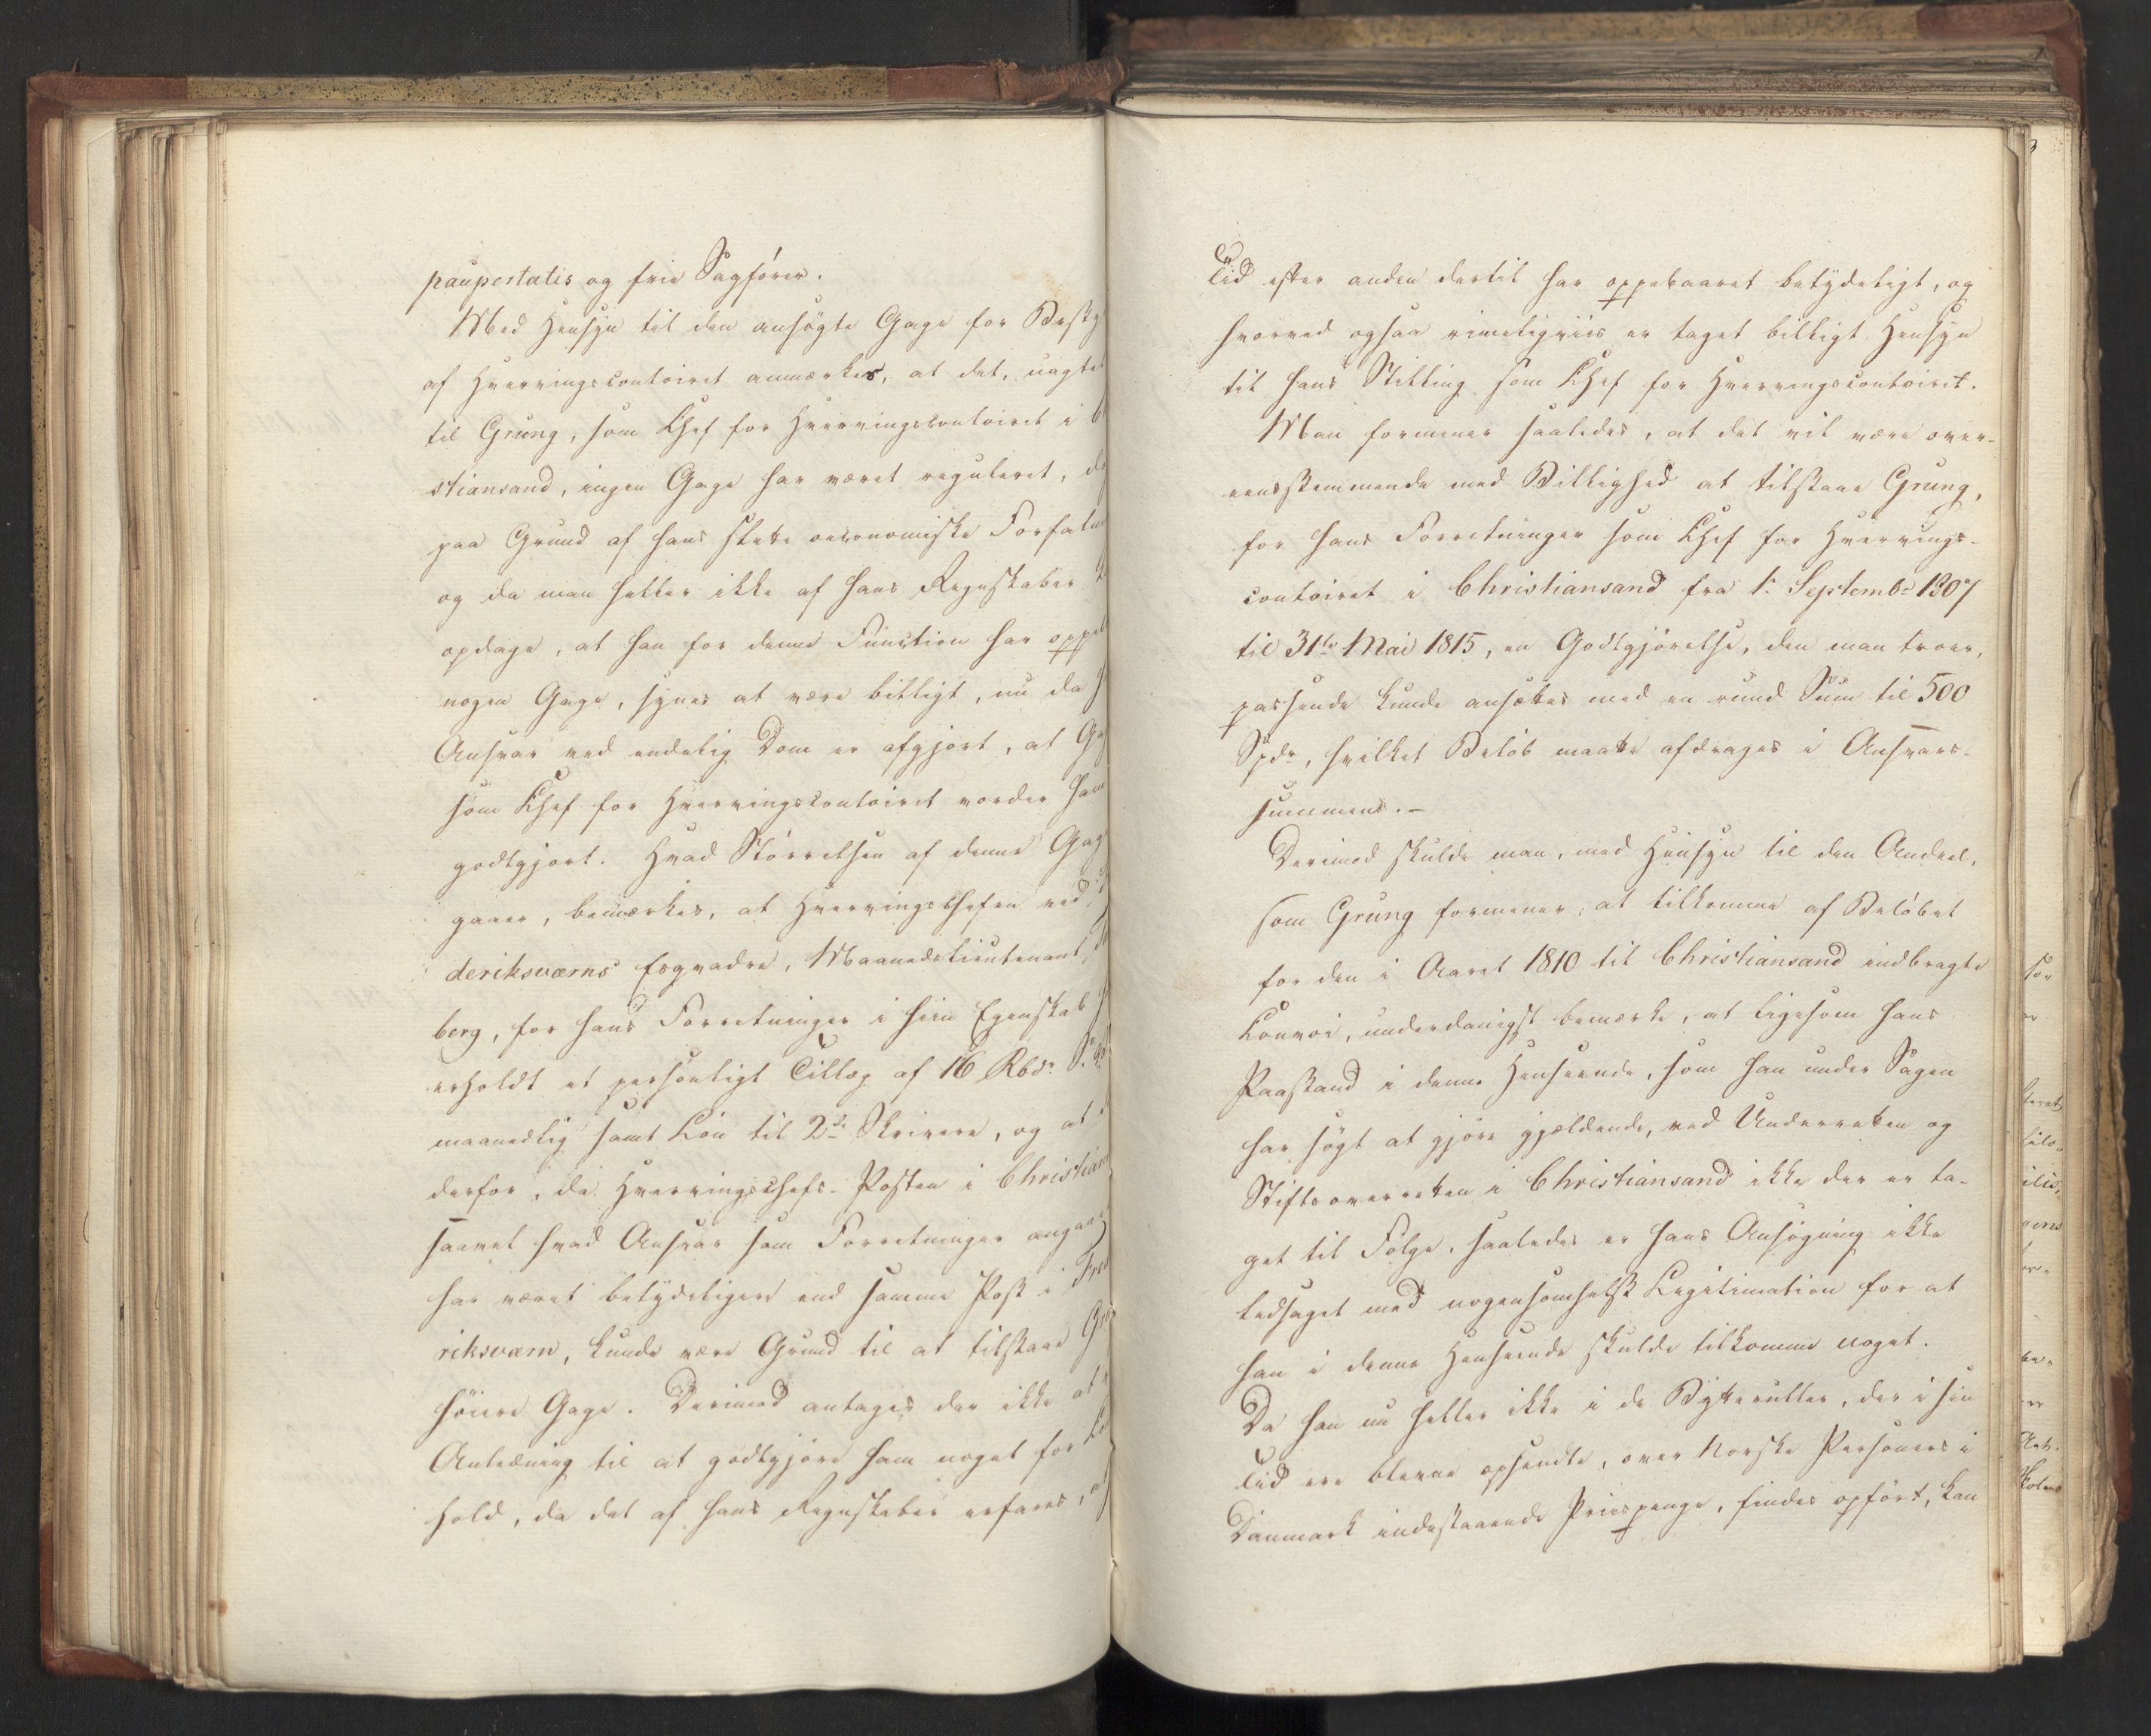 paupertatis og frie Sagfører.
Med Hensyn til den ansøgte Gage for Besty
af Hvervingscontoiret anmærkes, at det, uagtet
til Grüng, som Chef for Hvervingscontoiret i
stiansand, ingen Gage har været reguleret,
paa Grund af hans slette oeconomiske Forfatn
og da man heller ikke af hans Regnskaber
opdage, at han for denne Function har oppeb
nogen Gage, synes at være billigt, nu da
Ansvar ved endelig Dom er afgjort, at Gag
som Chef for Hvervingscontoiret vorder ham
godtgjort. Hvad Størrelsen af denne Gag
gaaer, bemærkes, at Hvervingschefen ved
deriksværns Esqvadre, Maanedslieutenant
berg, for hans Forretninger i hiin Egenskab
erholdt et personligt Tillæg af 16 Rbdr S.
maanedlig samt Løn til 2de Skrivere, og at
derfor, da Hvervingschefs-Posten i Christian
saavel hvad Ansvar som Forretninger angaaer
har været betydeligere end samme Post i Fred
riksværn, kunde være Grund til at tilstaae Grü
høiere Gage. Derimod antages der ikke at
Anledning til at godtgjøre ham noget for
hold, da det af hans Regnskaber erfares,
Tid efter anden dertil har oppebaaret betydeligt, og
hvorved ogsaa rimeligviis er taget billigt Hensyn
til hans Stilling som Chef for Hvervingscontoiret.
Man formener saaledes, at det vil være over-
eensstemmende med Billighed at tilstaae Grüng,
for hans Forretninger som Chef for Hvervings-
contoiret i Christiansand fra 1. Septembr 1807
til 31te Mai 1815, en Godtgjørelse, den man troer,
passende kunde ansættes med en rund Sum til 500
Spdr, hvilket Beløb maatte afdrages i Ansvars-
summens.-
Derimod skulde man, med Hensyn til den Andeel,
som Grüng formener, at tilkomme af Beløbet
for den i Aaret 1810 til Christiansand indbragte
Convoi, underdanigst bemærke, at ligesom hans
Paastand i denne Henseende, som han under Sagen
har søgt at gjøre gjældende, ved Underretten og
Stiftsoverretten i Christiansand ikke der er ta-
get til Følge, saaledes er hans Ansøgning ikke
ledsaget med nogensomhelst Legitimation for at
han i denne Henseende skulde tilkomme noget.
Da han nu heller ikke i de Bytteruller, der i sin
Tid ere blevne opsendte, over Norske Personers i
Danmark indestaaende Priispenge, findes opført, kan